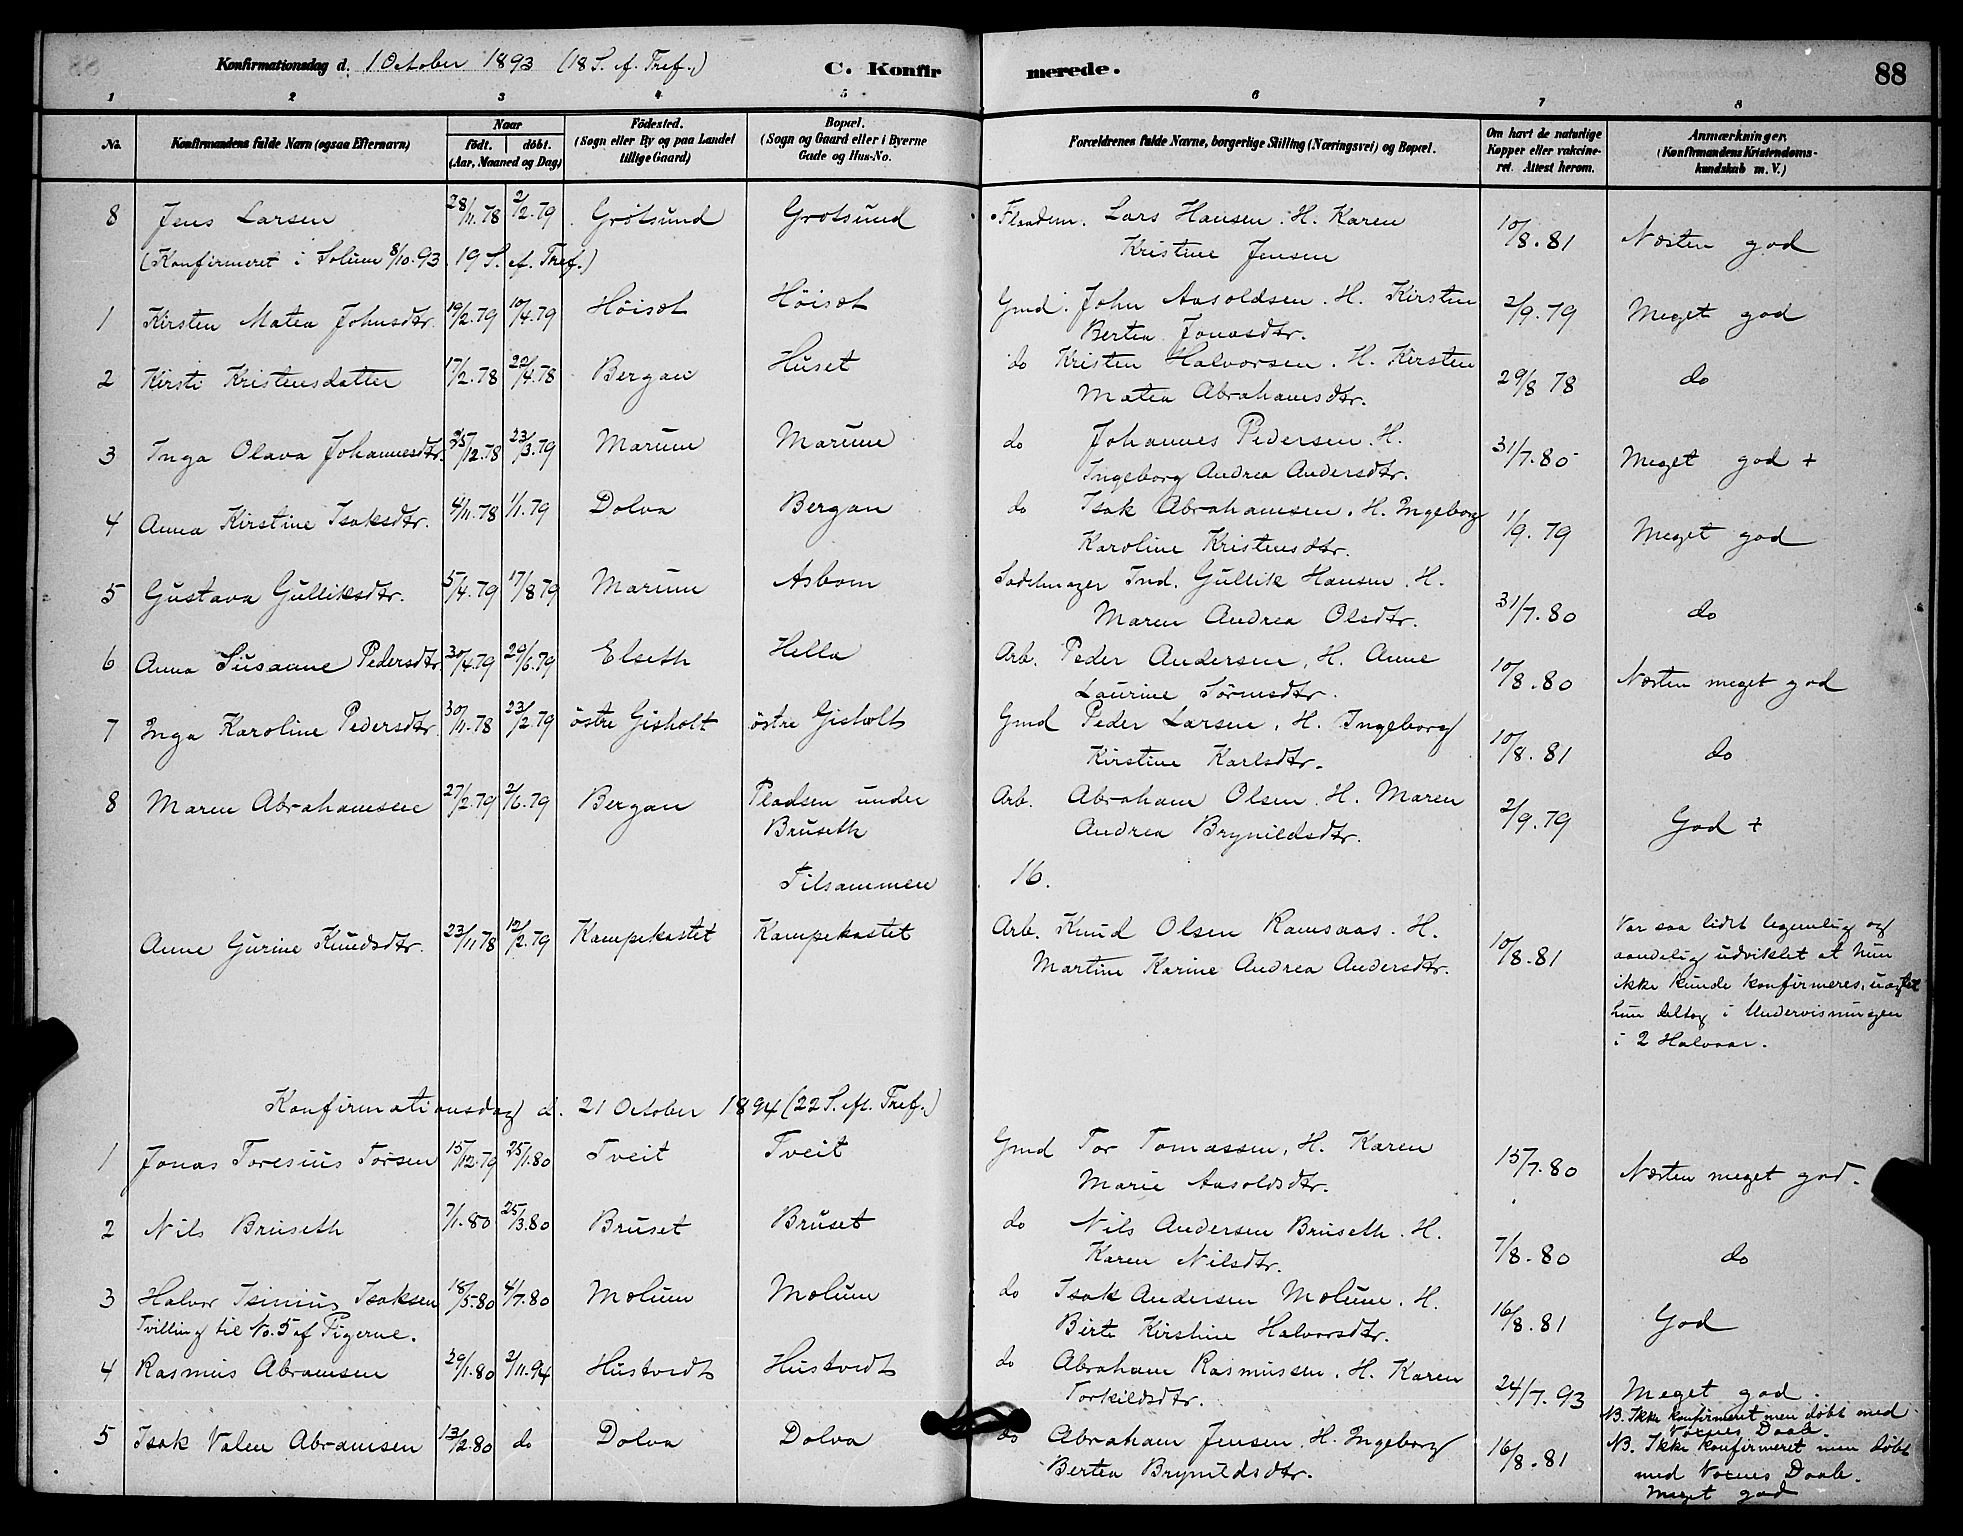 Konfirmationsdag d. 1 October 1893 (18 S. ef. Tref.) C. Konfirmerede. 88
1 2 3 4 5 6 7 8
No. Konfirmandens fulde Navn (ogsaa Efternavn) Naar født. døbt. (Aar, Maaned og Dag) Födested. (Sogn eller By og paa Landet tillige Gaard) Bopæl. (Sogn og Gaard eller i Byerne Gade og Hus-No. Forældrenes fulde Navne, borgerlige Stilling (Næringsvei) og Bopæl. Om havt de naturlige Kopper eller vakcineret. Attest herom. Anmærkninger. (Konfirmandens Kristendomskundskab m. V.)
8 Jens Larsen 28/11.78 2/2.79 Grötsund Grotsund Lars Hansen. H. Karen 10/8.81 Næsten god
Kristine Jensen
(Konfirmeret i Solum 8/10.93 19 S. ef. Tref.)
1 Kirsten Matea Johnsdtr. 19/2.79 10/4.79 Höisæt Höisæt Gmd. John Aasoldsen. H. Kirsten 2/9.79 Meget god
Bertea Jonasdtr.
2 Kirsti Kristensdatter 17/2.78 22/4.78 Bergan Huset do Kristen Halvorsen. H. Kirsten 29/8 78 do
Matea Abrahamsdtr.
3 Inga Olava Johannesdtr. 25/12.78 23/3.79 Marum Marum do Johannes Pedersen. H. 31/7.80 Meget god +
Ingeborg Andrea Andersdtr.
4 Anna Kirstine Isaksdtr. 4/11.78 1/1.79 Dolva Bergan do Isak Abrahamsen. H. Ingeborg 1/9.79 Meget god
Karoline Kristensdtr.
5 Gustava Gulliksdtr. 5/4.79 17/8 79 Marum Asbom Sadelmager Ind. Gullik Hansen. H. 31/7.80 do
Maren Andrea Olsdtr.
6 Anna Susanne Pedersdtr. 30/4.79 29/6.79 Elseth Hella Arb. Peder Andersen, H. Anne 10/8.80 Næsten meget god
Laurine Sörensdtr.
7 Inga Karoline Pedersdtr. 30/11.78 23/2.79 östre Gisholt östre Gisholt Gmd Peder Larsen, H. Ingeborg 10/8.81 do
Kirstine Karlsdtr.
8 Maren Abrahamsen 27/2.79 2/6.79 Bergan Pladsen under Arb. Abraham Olsen. H. Maren 2/9.79 God +
Bruseth Andrea Brynildsdtr.
Tilsammen 16.
Anne Gurine Knudsdtr. 23/11 78 12/2.79 Kampekastet Kampekastet Arb. Knud Olsen Ramsaas. H. 10/8.81 Var saa lidet legemlig og
Martine Karine Andrea Andersdtr. aandelig udviklet at hun
ikke kunde konfirmeres, uagtet
hun deltog i Undervisningen
i 2 Halvaar.
Konfirmationsdag d. 21 October 1894 (22 S. eft. Tref.)
1 Jonas Toresius Torsen 15/12.79 25/1.80 Tveit Tveit Gmd Tor Tomassen, H. Karen 15/7.80 Næsten meget god.
Marie Aasoldsdtr.
2 Nils Bruseth 7/1.80 25/3.80 Bruset Bruset do Nils Andersen Bruseth. H. 7/8.80 do
Karen Nilsdtr.
3 Halvor Isinius Isaksen 18/5.80 4/7.80 Molum Molum do Isak Andersen Molum. H. 16/8.81 God
Tvilling til No. 5 af Pigerne. Birte Kirstine Halvorsdtr.
4 Rasmus Abramsen 29/1.80 2/11.94 Hustvedt Hustvedt do Abraham Rasmussen. H. Karen 24/7.93 Meget god.
Torkildsdtr. NB. Ikke konfirmeret men döbt med
Voxnes Daab.
5 Isak Valen Abramsen 13/2.80 do Dolva Dolva do Abraham Jensen. H. Ingeborg 16/8.81 NB. Ikke konfirmeret men döbt
Bertea Brynildsdtr. med Voxnes Daab.
Meget god